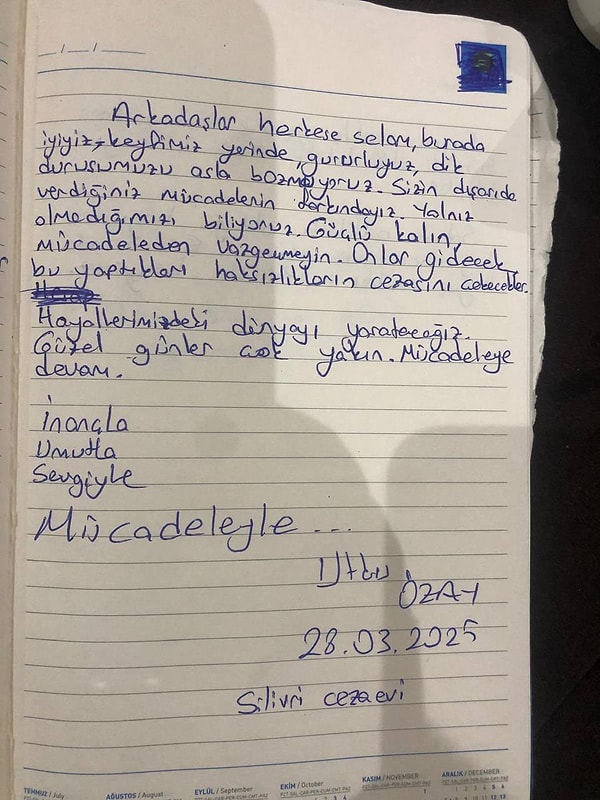 _ / _ / ____
Arkadaşlar herkese selam, burada
iyiyiz, keyfimiz yerinde, gururluyuz, dik
duruşumuzu asla bozmuyoruz. Sizin dışarıda
verdiğiniz mücadelenin farkındayız. Yalnız
olmadığımızı biliyoruz. Güçlü kalın,
mücadeleden vazgeçmeyin. Onlar gidecek,
bu yaptıkları haksızlıkların cezasını çekecekler.
Hayallerimizdeki dünyayı yaratacağız.
Güzel günler çok yakın. Mücadeleye
devam.
İnançla
Umutla
Sevgiyle
Mücadeleyle ...
Utku
ÖZAY
28.03.2025
Silivri cezaevi
TEMMUZ / July
AĞUSTOS / August
EYLÜL / September
EKİM / October
KASIM / NOVEMBER
ARALIK / DECEMBER